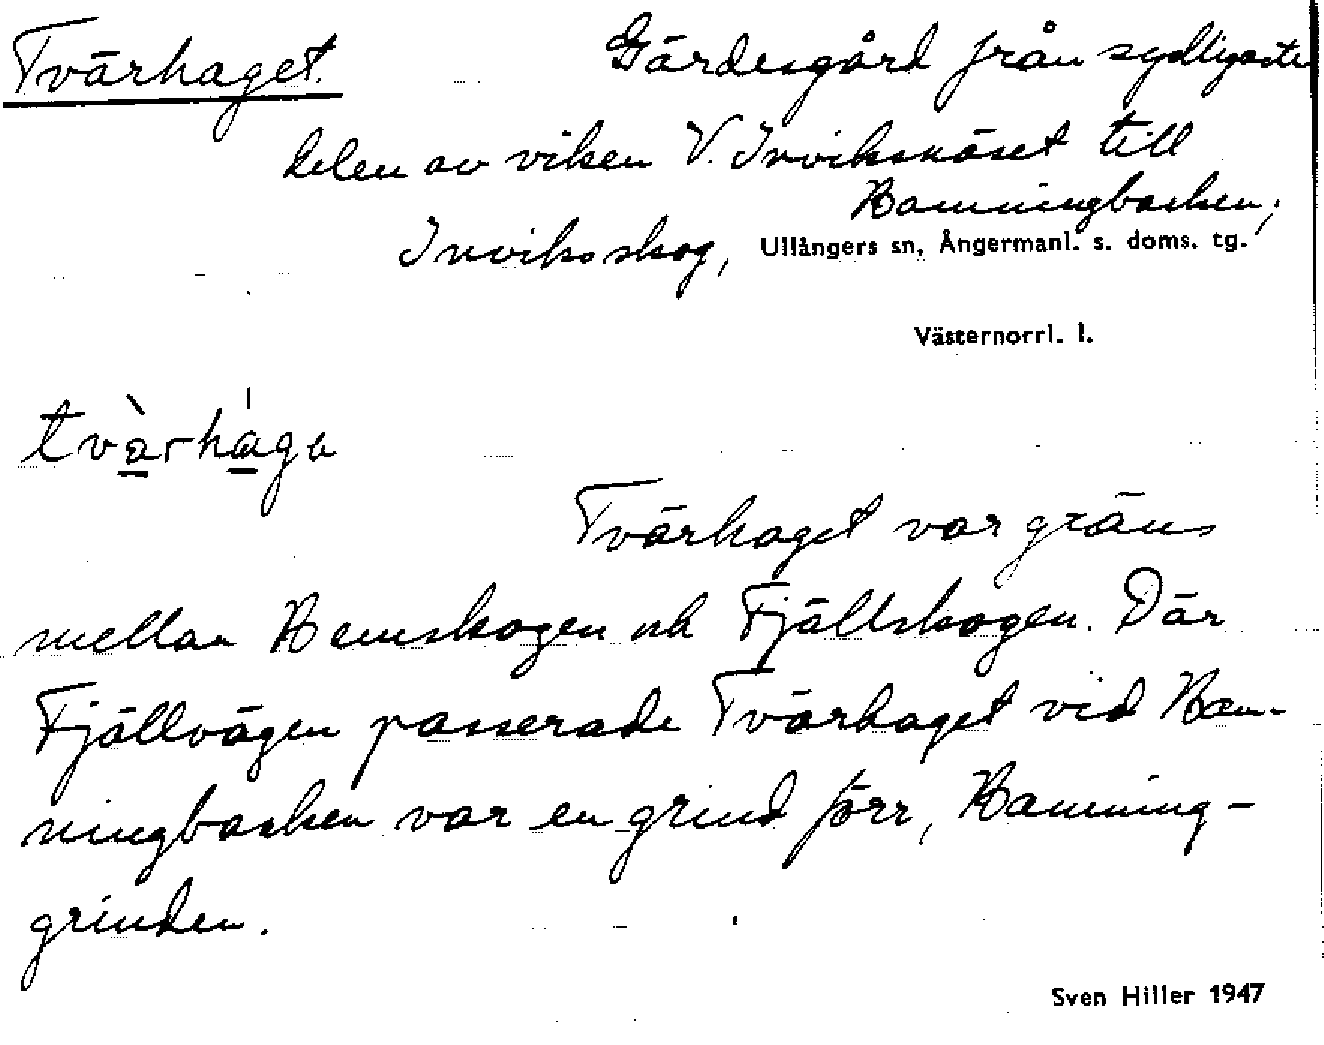 Tvärhaget. Gärdesgård från sydligaste
delen av viken V. Inviksnäset till
Hamningbacken,
Inviksskog, Ullångers sn, Ångermanl. s. doms. tg.
Västernorrl. l.
tvàrhága
Tvärhaget var gräns
mellan Hemskogen och Fjällskogen. Där
Fjällvägen passerade Tvärhaget vid Ham-
ningbacken var en grind förr, Hamning-
grinden.
Sven Hiller 1947